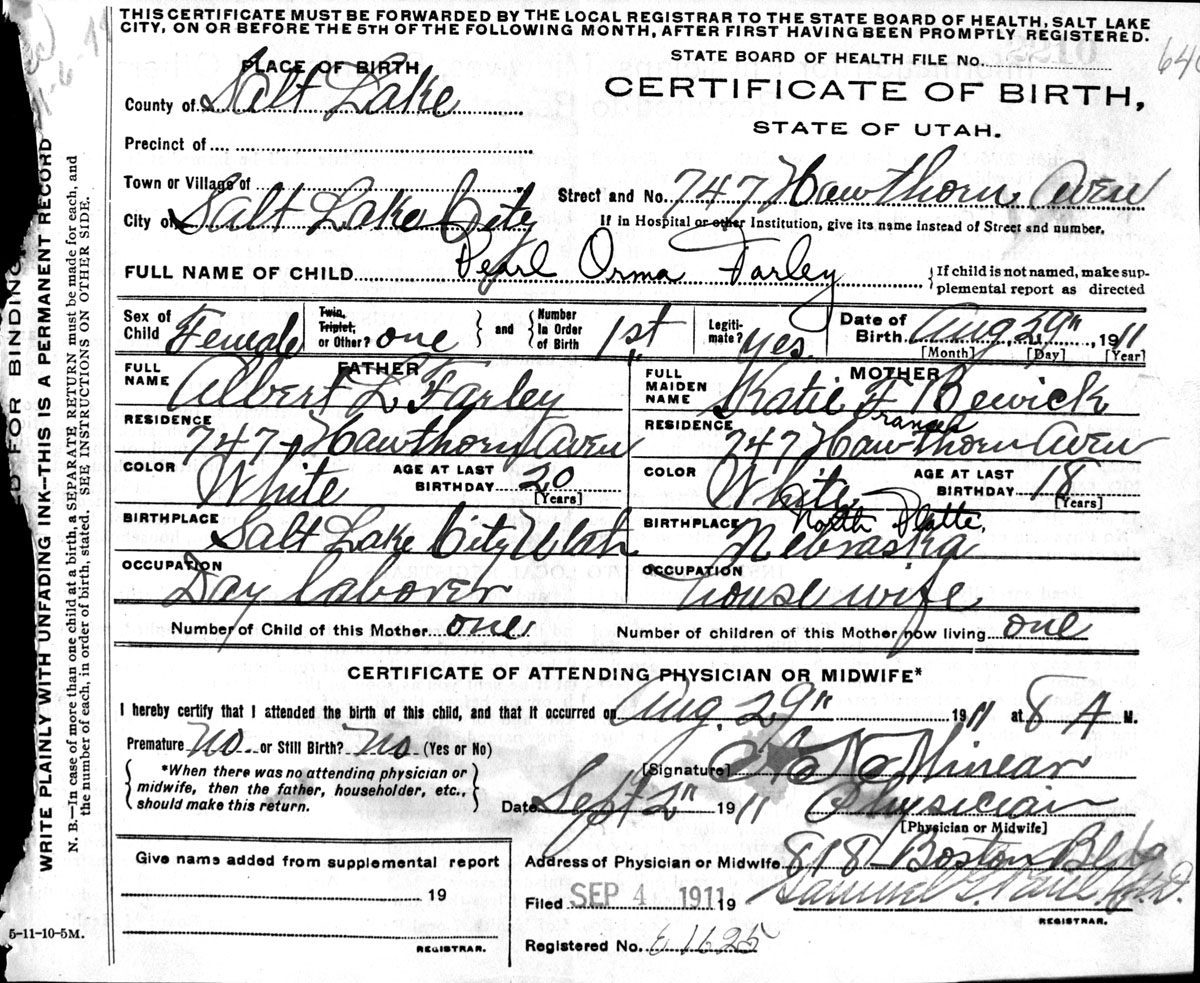 THIS CERTIFICATE MUST BE FORWARDED BY THE LOCAL REGISTRAR TO THE STATE BOARD OF HEALTH, SALT LAKE
CITY, ON OR BEFORE THE 5TH OF THE FOLLOWING MONTH, AFTER FIRST HAVING BEEN PROMPTLY REGISTERED.
STATE BOARD OF HEALTH FILE No.
PLACE OF BIRTH
County of Salt Lake
CERTIFICATE OF BIRTH,
STATE OF UTAH.
Precinct of
Town or Village of
Street and No. 747 Hawthorn Aven
City of Salt Lake City
If in Hospital or other Institution, give its name instead of Street and number.
FULL NAME OF CHILD Pearl Orma Farley
If child is not named, make sup-
plemental report as directed
Sex of Child Female
Twin, Triplet, or Other? one
and Number In Order of Birth 1st
Legiti-mate? yes.
Date of Birth Aug. 29" 1911
[Month] [Day] [Year]
FATHER
FULL NAME Albert L Farley
RESIDENCE 747 Hawthorn Aven
COLOR White AGE AT LAST BIRTHDAY 20 [Years]
BIRTHPLACE Salt Lake City Utah
OCCUPATION Day laborer
MOTHER
FULL MAIDEN NAME Katie F Bewick
Frances
RESIDENCE 747 Hawthorn Aven
COLOR White AGE AT LAST BIRTHDAY 18 [Years]
North Platte,
BIRTHPLACE Nebraska
OCCUPATION Housewife
Number of Child of this Mother one
Number of children of this Mother now living one
CERTIFICATE OF ATTENDING PHYSICIAN OR MIDWIFE*
I hereby certify that I attended the birth of this child, and that it occurred on Aug. 29" 1911 at 8 A M.
Premature No or Still Birth? No (Yes or No)
*When there was no attending physician or
midwife, then the father, householder, etc.,
should make this return.
[Signature] Minear
Date Sept 2" 1911 Physician
[Physician or Midwife]
Give name added from supplemental report
19
REGISTRAR.
Address of Physician or Midwife 818 Boston Bldg
Filed SEP 4 1911 19 Samuel G. Paul M.D.
REGISTRAR.
Registered No. E1625
5-11-10-5M.
FOR BINDING
WRITE PLAINLY WITH UNFADING INK—THIS IS A PERMANENT RECORD
N. B.—In case of more than one child at a birth, a SEPARATE RETURN must be made for each, and
the number of each, in order of birth, stated. SEE INSTRUCTIONS ON OTHER SIDE.